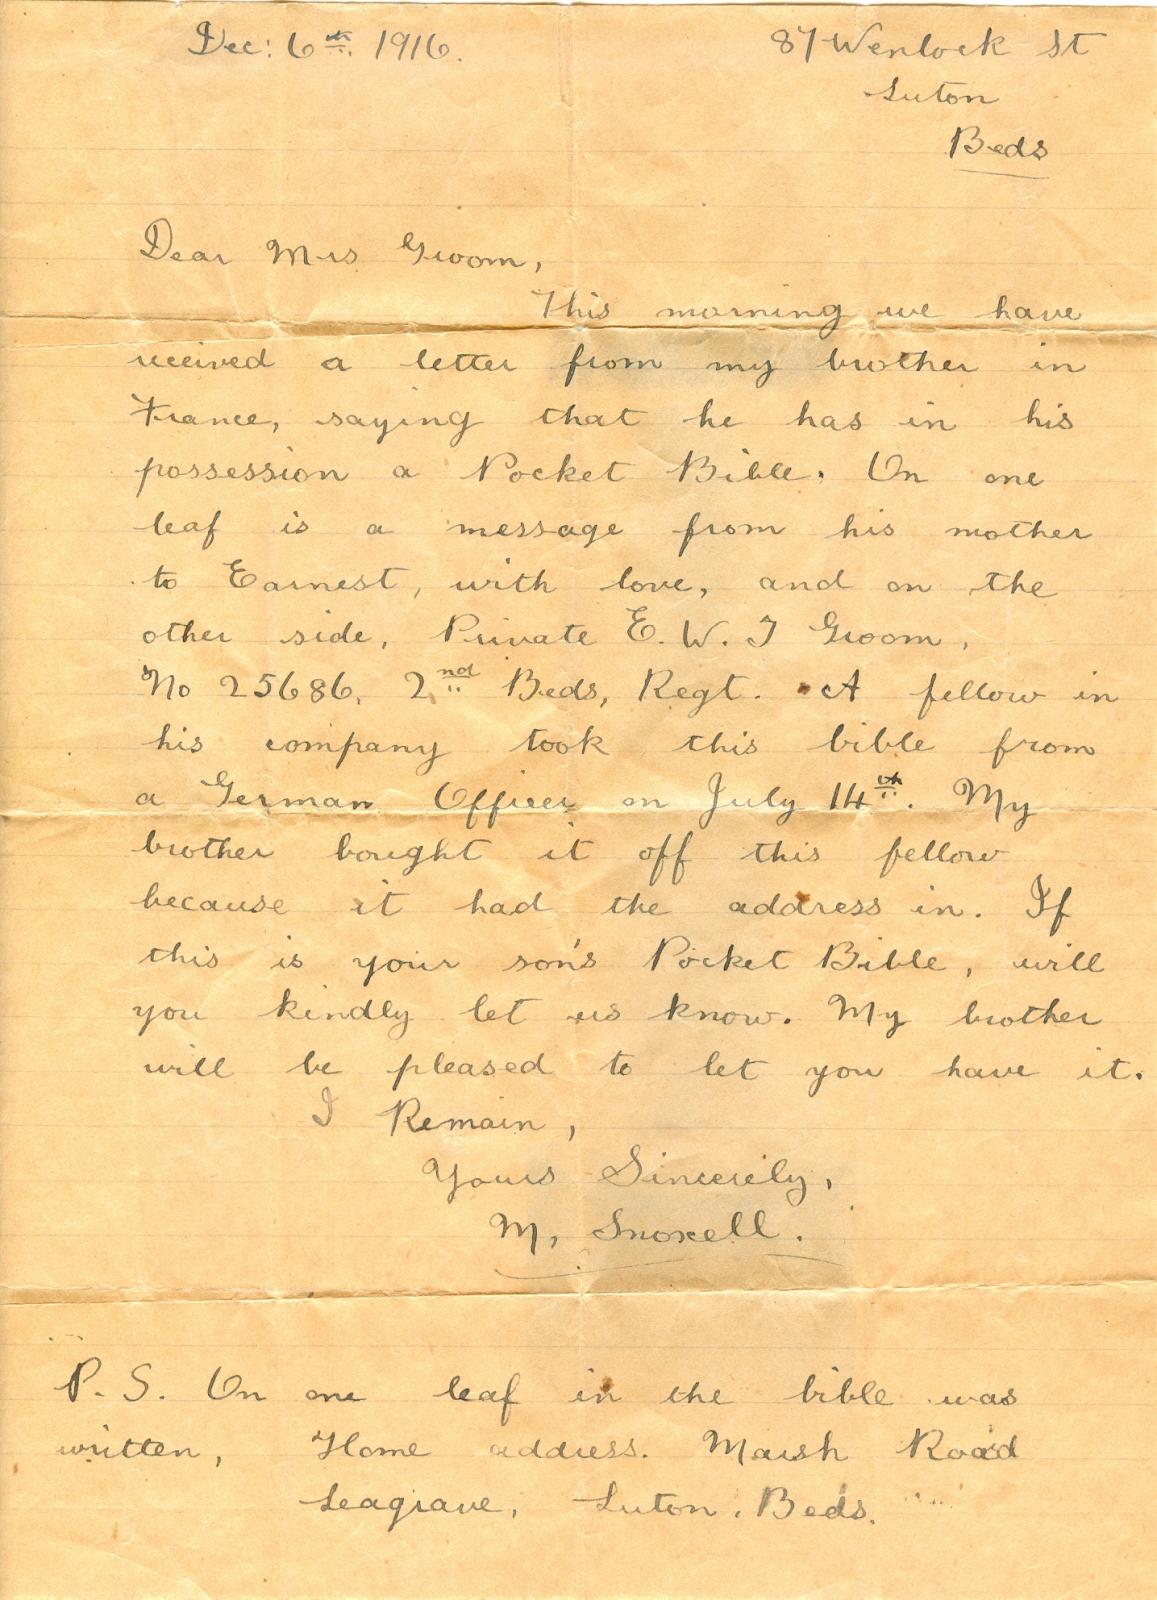 Dec: 6th 1916.
87 Wenlock St
Luton
Beds
Dear Mrs Groom,
This morning we have
received a letter from my brother in
France, saying that he has in his
possession a Pocket Bible. On one
leaf is a message from his mother
to Earnest, with love, and on the
other side, Private E. W. J Groom,
No 25686, 2nd Beds, Regt. A fellow in
his company took this bible from
a German Officer on July 14th. My
brother bought it off this fellow
because it had the address in. If
this is your son's Pocket Bible, will
you kindly let us know. My brother
will be pleased to let you have it.
I Remain,
Yours Sincerily,
M, Snoxell.
P. S. On one leaf in the bible was
written, Home address. Marsh Road
Leagrave, Luton. Beds.